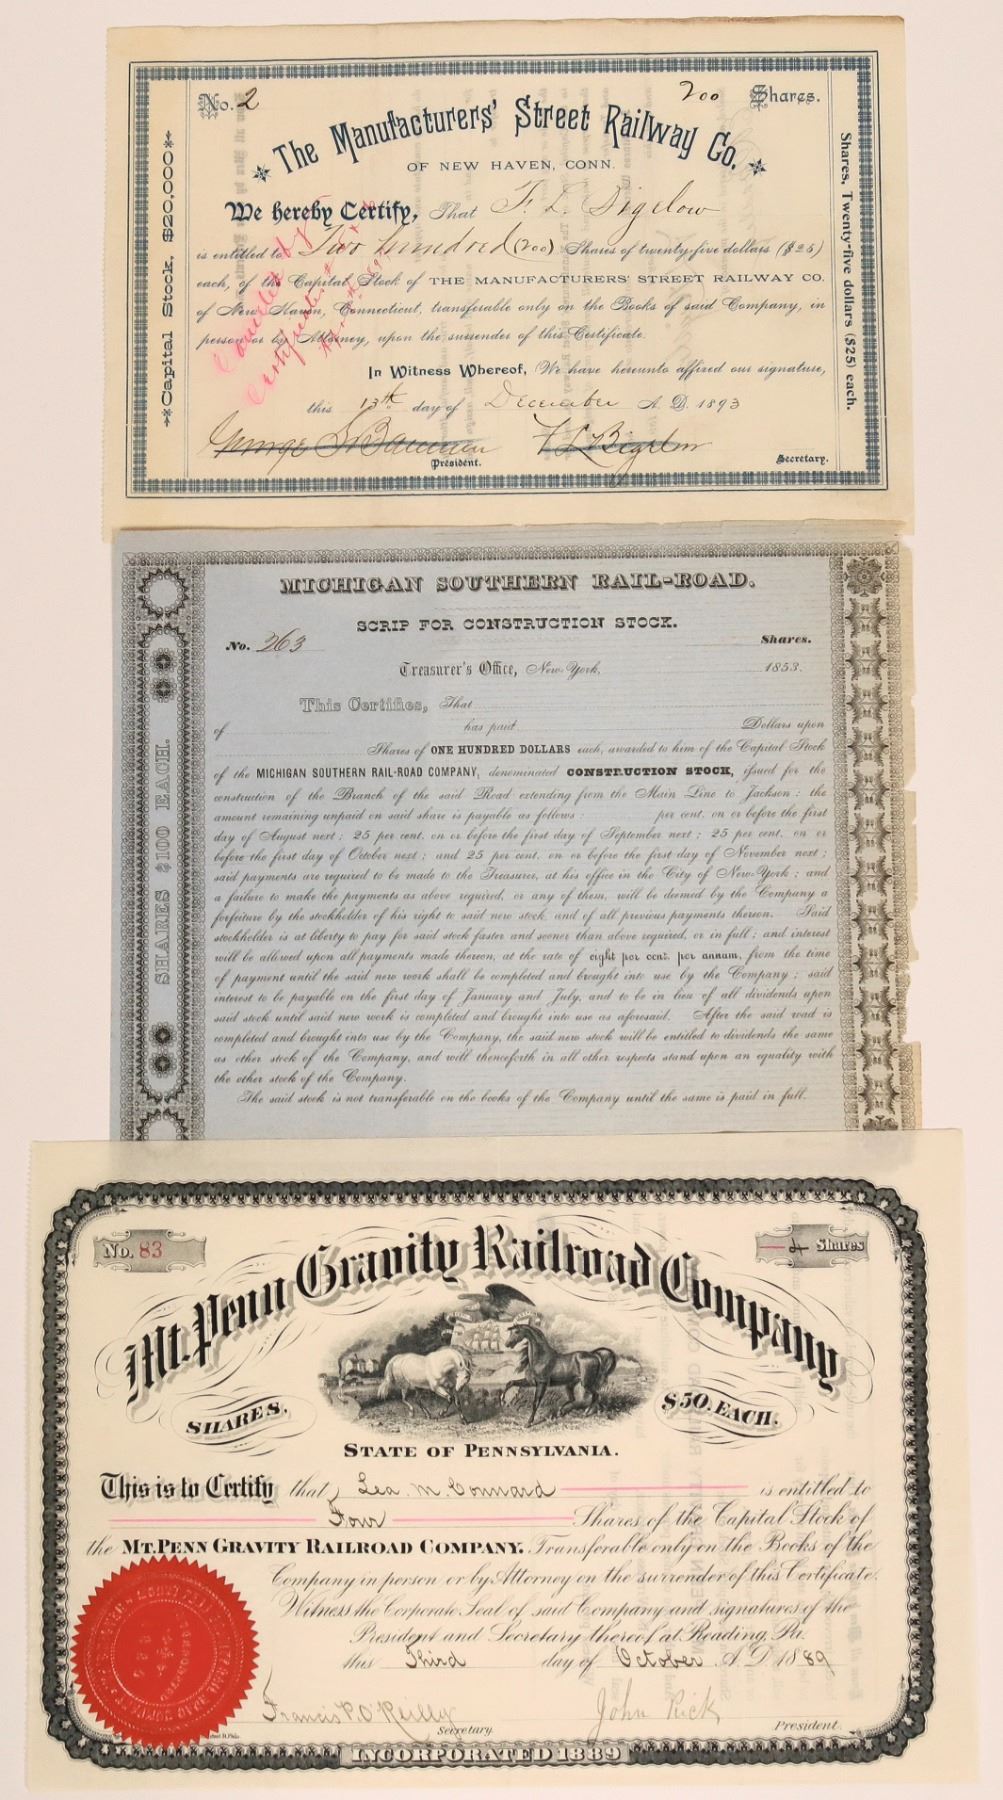 No. 2
200 Shares.
The Manufacturers' Street Railway Co.
OF NEW HAVEN, CONN.
**Capital Stock, $20,000**
Shares, Twenty-five dollars ($25) each.
We hereby Certify, That F. L. Bigelow
is entitled to Two hundred (200) Shares of twenty-five dollars ($25)
each, of the Capital Stock of THE MANUFACTURERS' STREET RAILWAY CO.
of New Haven, Connecticut, transferable only on the Books of said Company, in
person or by Attorney, upon the surrender of this Certificate.
In Witness Whereof, We have hereunto affixed our signature,
this 13th day of December A. D. 1893
President.
F L Bigelow
Secretary.
MICHIGAN SOUTHERN RAIL-ROAD.
SCRIP FOR CONSTRUCTION STOCK.
No. 263
Shares.
Treasurer's Office, New-York, 1853.
SHARES $100 EACH.
This Certifies, That
of has paid Dollars upon
Shares of ONE HUNDRED DOLLARS each, awarded to him of the Capital Stock
of the MICHIGAN SOUTHERN RAIL-ROAD COMPANY, denominated CONSTRUCTION STOCK, issued for the
construction of the Branch of the said Road extending from the Main Line to Jackson : the
amount remaining unpaid on said share is payable as follows : per cent. on or before the first
day of August next ; 25 per cent. on or before the first day of September next ; 25 per cent. on or
before the first day of October next ; and 25 per cent. on or before the first day of November next ;
said payments are required to be made to the Treasurer, at his office in the City of New-York ; and
a failure to make the payments as above required, or any of them, will be deemed by the Company a
forfeiture by the stockholder of his right to said new stock and of all previous payments thereon. Said
stockholder is at liberty to pay for said stock faster and sooner than above required, or in full ; and interest
will be allowed upon all payments made thereon, at the rate of eight per cent. per annum, from the time
of payment until the said new work shall be completed and brought into use by the Company ; said
interest to be payable on the first day of January and July, and to be in lieu of all dividends upon
said stock until said new work is completed and brought into use as aforesaid. After the said road is
completed and brought into use by the Company, the said new stock will be entitled to dividends the same
as other stock of the Company, and will thenceforth in all other respects stand upon an equality with
the other stock of the Company.
The said stock is not transferable on the books of the Company until the same is paid in full.
No. 83
4 Shares
Mt. Penn Gravity Railroad Company
SHARES, $50. EACH.
STATE OF PENNSYLVANIA.
This is to Certify that Lea. M. Connard is entitled to
Four Shares of the Capital Stock of
the MT. PENN GRAVITY RAILROAD COMPANY. Transferable only on the Books of the
Company in person or by Attorney on the surrender of this Certificate.
Witness the Corporate Seal of said Company and signatures of the
President and Secretary thereof at Reading, Pa.
this Third day of October A. D. 1889
Francis P. O'Reilly
Secretary
John Rick
President.
INCORPORATED 1889